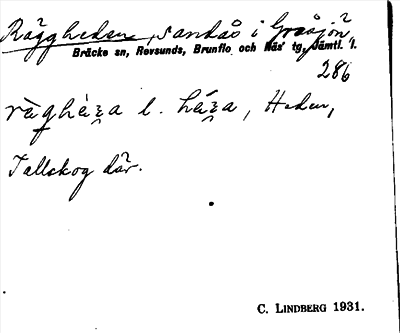 Räggheden, sandås i Gråsjön
Bräcke sn, Revsunds, Brunflo och Näs tg, Jämtl. l.
286
l. , Heden,
Tallskog där.
C. LINDBERG 1931.